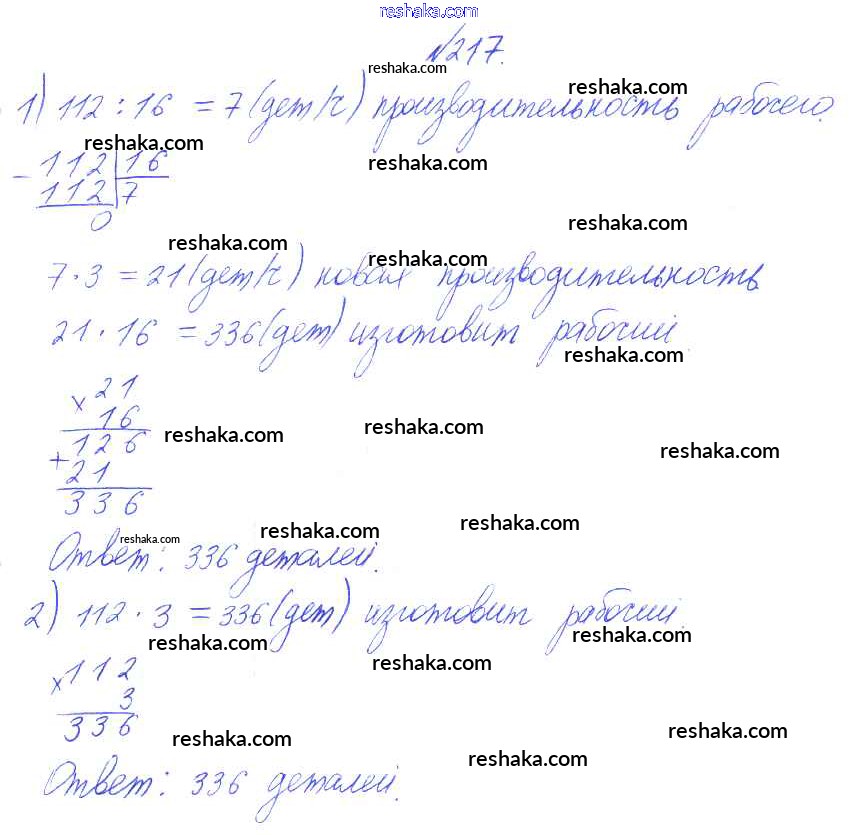 reshaka.com
№217.
reshaka.com
1) 112 : 16 = 7 (дет/ч) производительность рабочего.
reshaka.com
reshaka.com
reshaka.com
- 112 | 16
112 | 7
0
reshaka.com
reshaka.com
reshaka.com
7 · 3 = 21 (дет/ч) новая производительность
21 · 16 = 336 (дет) изготовит рабочий.
reshaka.com
× 21
16
reshaka.com reshaka.com
+ 126
21
reshaka.com
336
reshaka.com reshaka.com
reshaka.com
Ответ: 336 деталей.
2) 112 · 3 = 336 (дет) изготовит рабочий.
reshaka.com reshaka.com
reshaka.com
× 112
3
336
reshaka.com reshaka.com
reshaka.com
Ответ: 336 деталей.